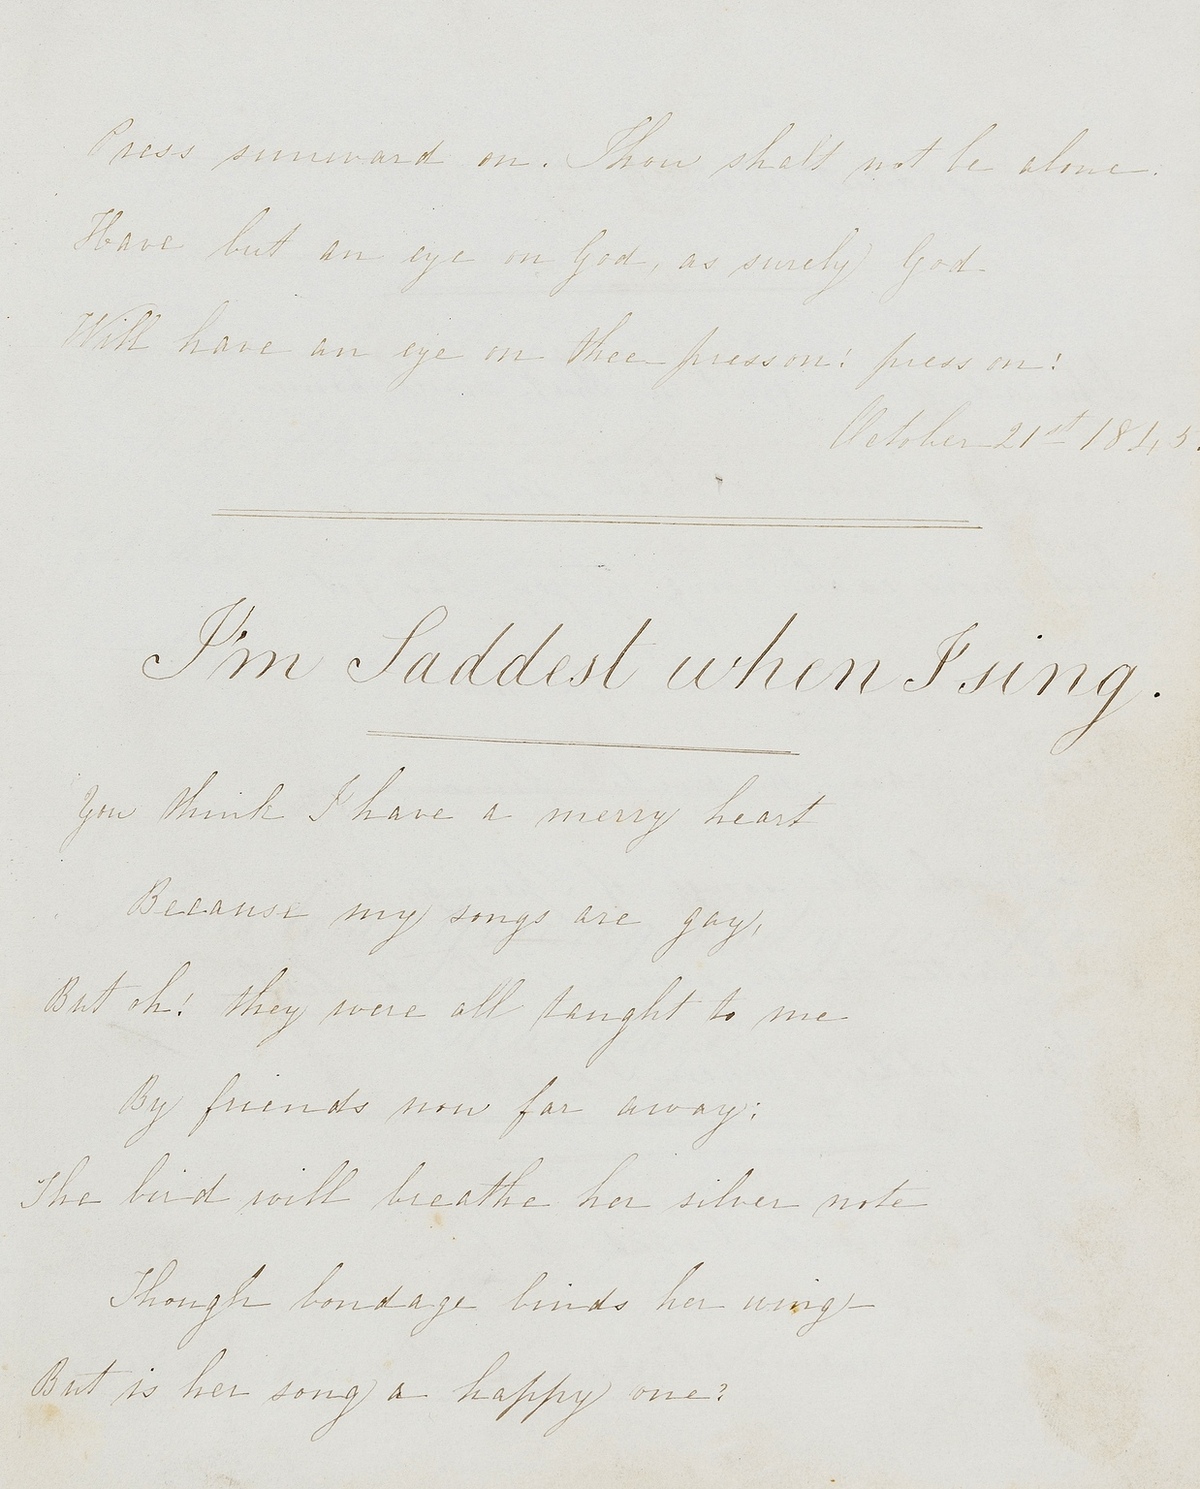 Press sunward on. Thou shalt not be alone.
Have but an eye on God, as surely God
Will have an eye on thee press on! press on!
October 21st 1845.
I'm Saddest when I sing.
You think I have a merry heart
Because my songs are gay,
But oh! they were all taught to me
By friends now far away;
The bird will breathe her silver note
Though bondage binds her wing
But is her song a happy one?